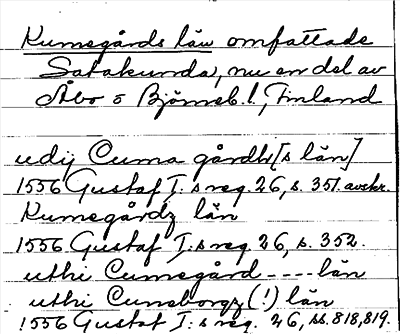 Kumogårds län omfattade
Satakunda, nu en del av
Åbo o Björneb. l., Finland
udij Cuma gårdh[s län]
1556 Gustaf I:s reg. 26, s. 351. avskr.
Kumegårdz län
1556 Gustaf I:s reg. 26, s. 352.
uthi Cumegård ---- län
uthi Cumeborgz (!) län
1556 Gustaf I:s reg. 26, ss. 818, 819.